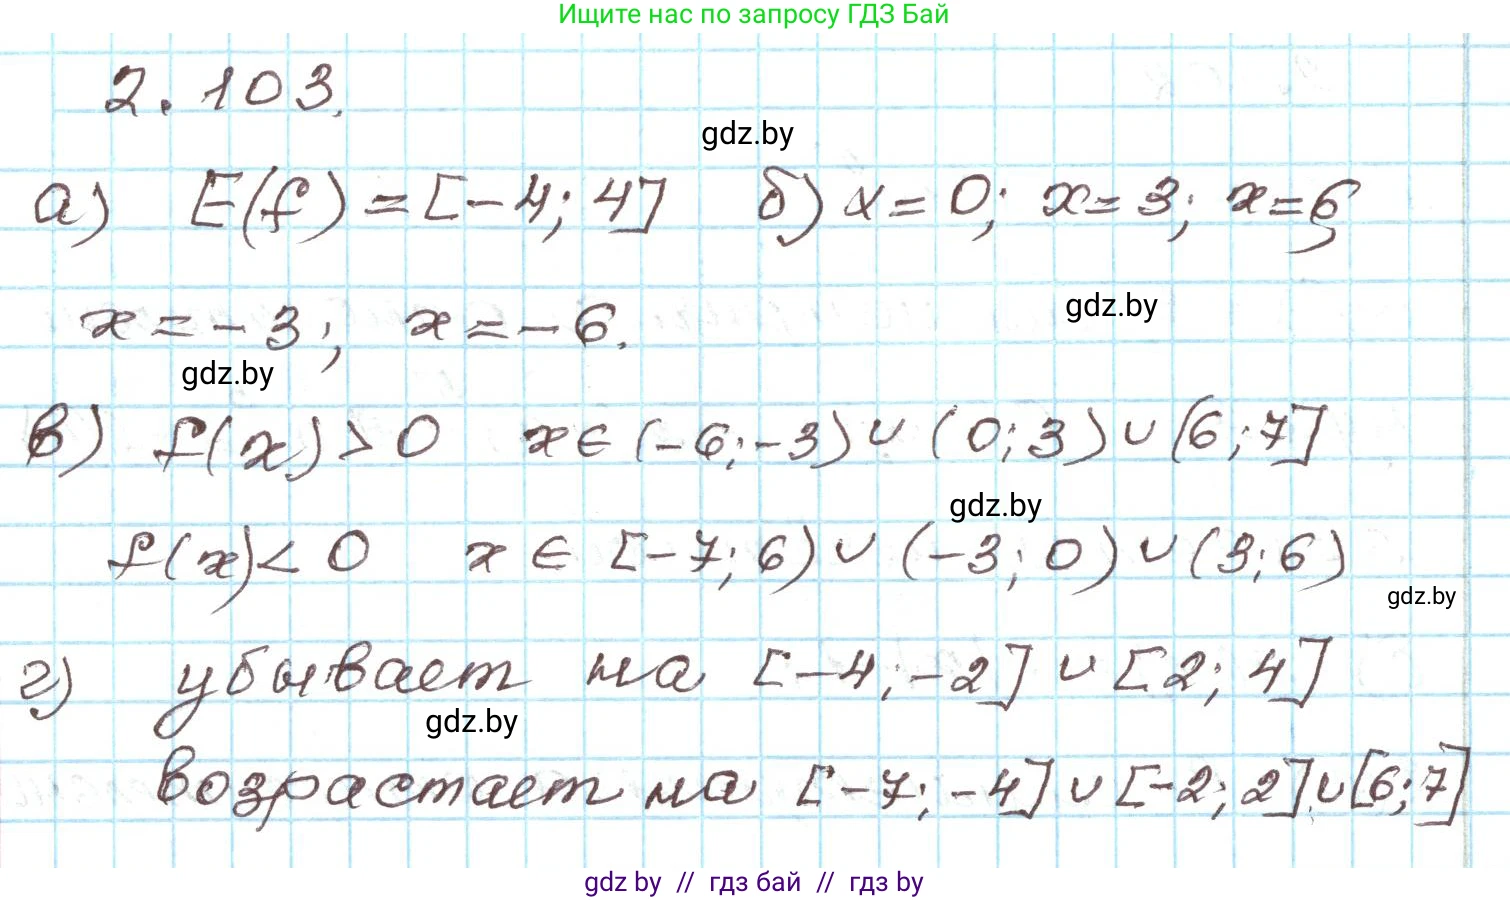 Ищите нас по запросу ГДЗ Бай
2.103.
gdz.by
а) E(f) = [-4; 4] б) x = 0; x = 3; x = 6;
gdz.by
x = -3; x = -6.
gdz.by
в) f(x) > 0 x ∈ (-6; -3) ∪ (0; 3) ∪ (6; 7]
gdz.by
f(x) < 0 x ∈ [-7; 6) ∪ (-3; 0) ∪ (3; 6)
gdz.by
г) убывает на [-4; -2] ∪ [2; 4]
gdz.by
возрастает на [-7; -4] ∪ [-2; 2] ∪ [6; 7]
gdz by // гдз бай // гдз by